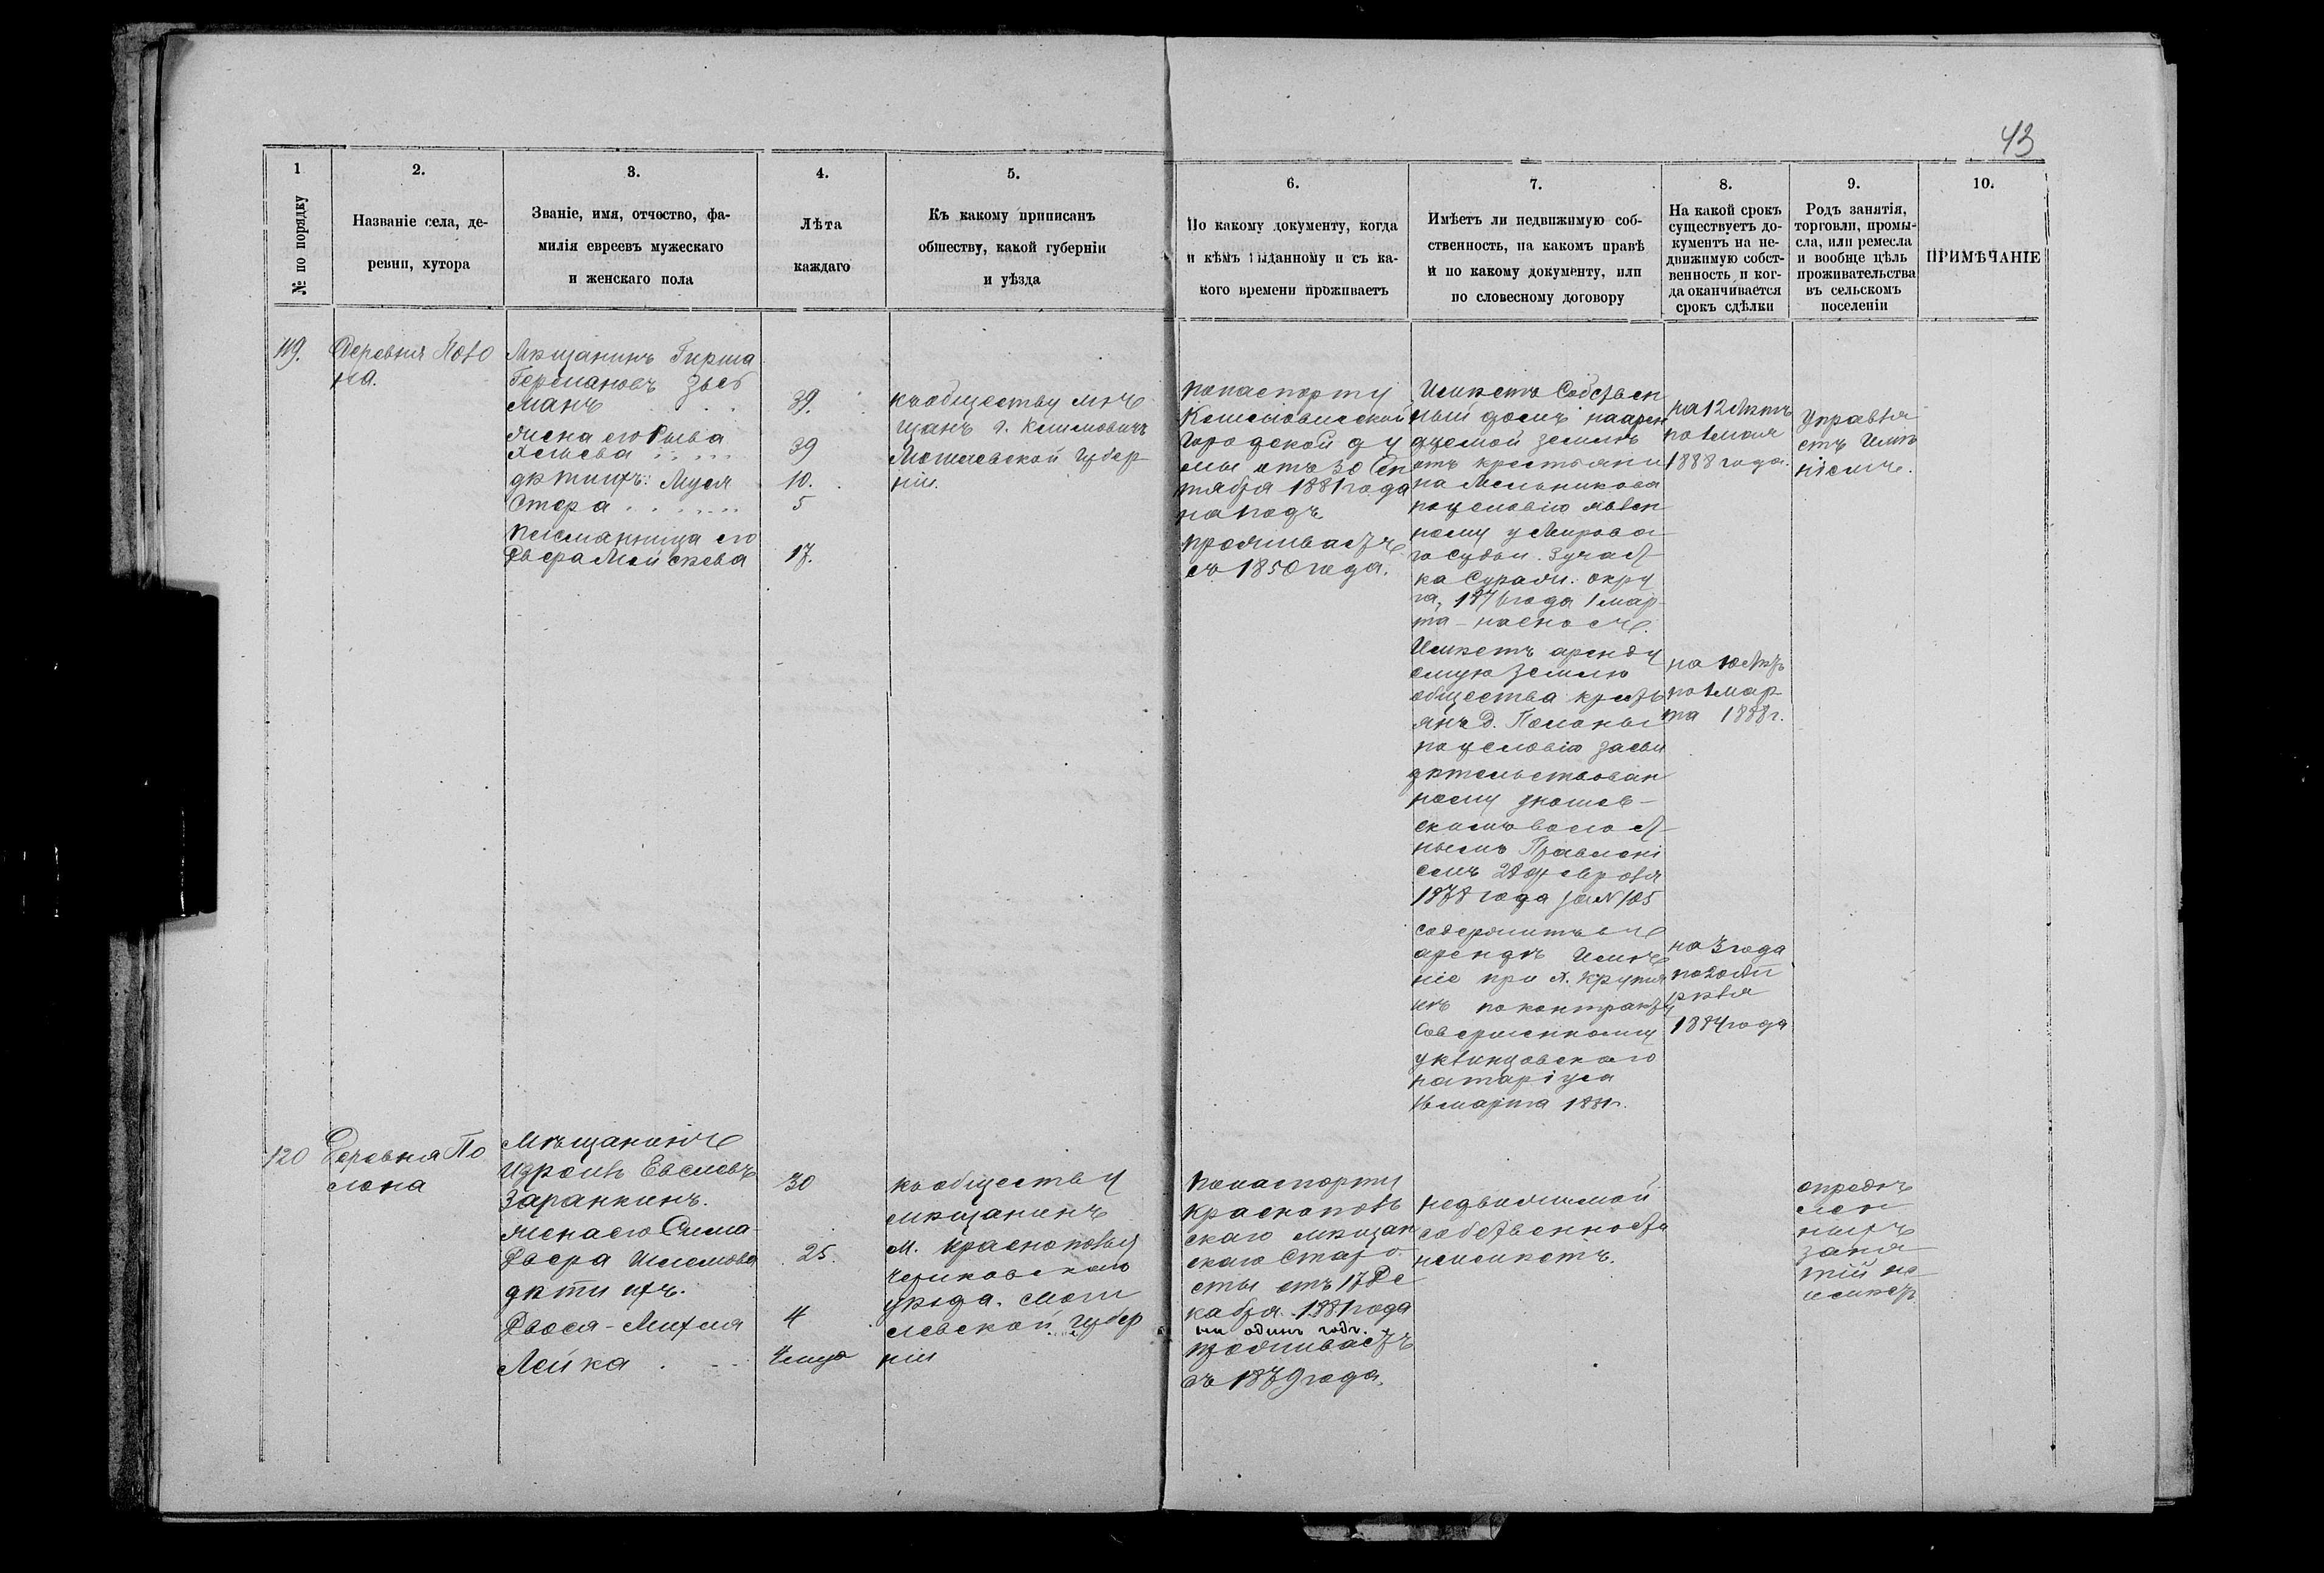 43
1
№ по порядку
2.
Названіе села, де-
ревни, хутора
3.
Званіе, имя, отчество, фа-
милія евреевъ мужескаго
и женскаго пола
4.
Лѣта
каждаго
5.
Къ какому приписанъ
обществу, какой губерніи
и уѣзда
6.
По какому документу, когда
и кѣмъ выданному и съ ка-
кого времени проживаетъ
7.
Имѣетъ ли недвижимую соб-
ственность, на какомъ правѣ
и по какому документу, или
по словесному договору
8.
На какой срокъ
существуетъ до-
кументъ на не-
движимую собст-
венность и ког-
да оканчивается
срокъ сдѣлки
9.
Родъ занятія,
торговли, промы-
сла, или ремесла
и вообще цѣль
проживательства
въ сельскомъ
поселеніи
10.
ПРИМѢЧАНІЕ
119.
Деревня Поло
на.
Мѣщанинъ Гирша
Германовъ
манъ
жена его Рыва
дѣти ихъ: Муся
Стера
племянница его
Двера
39.
39
10.
5
17.
къ обществу мѣ
щанъ г. Климовичъ
Могилевской губер-
ніи.
по паспорту
Климовичской
Городской Ду
мы отъ 30 Сен
тября 1881 года
на годъ
проживаетъ
съ 1850 года.
Имѣетъ Собствен
ный домъ на арен
дуемой землѣ
отъ крестьяни
на Мельникова
по условію явлен
ному у Мирова
го Судьи 3 участ
ка Сураж. окру
га, года 1 мар-
та на сносъ.
Имѣетъ аренду
емую землю
общества кресть
янъ д. Полоны
по условію засви
дѣтельствован
ному
скимъ волост
нымъ Правлені
емъ 28 февраля
1878 года за № 105
содержитъ въ
арендѣ Имѣ
ніе при х.
по контракту
Совершенному
у Клинцовскаго
нотаріуса
16 марта 1881 г.
на 12 лѣтъ
по 1 мая
1888 года.
на 10 лѣтъ
по 1 мар
та 1888 г.
на 3 года
по 20
1884 года
Управля
етъ Имѣ
ніемъ.
120
Деревня По
лона
Мѣщанинъ
Израиль
Заранкинъ.
жена его Сима-
Двера
дѣти ихъ.
Двося-Михля
Лейка
30
25.
4
къ обществу
мѣщанинъ
м. Краснополья
Чериковскаго
уѣзда. Моги
левской губер
ніи
по паспорту
Краснополь
скаго мѣщан
скаго Старо
сты отъ 17 Де
кабря 1881 года
на одинъ годъ.
проживаетъ
съ 1879 года.
недвижимой
собственности
неимѣетъ.
опредѣ
лен
ныхъ
заня
тій не
имѣетъ